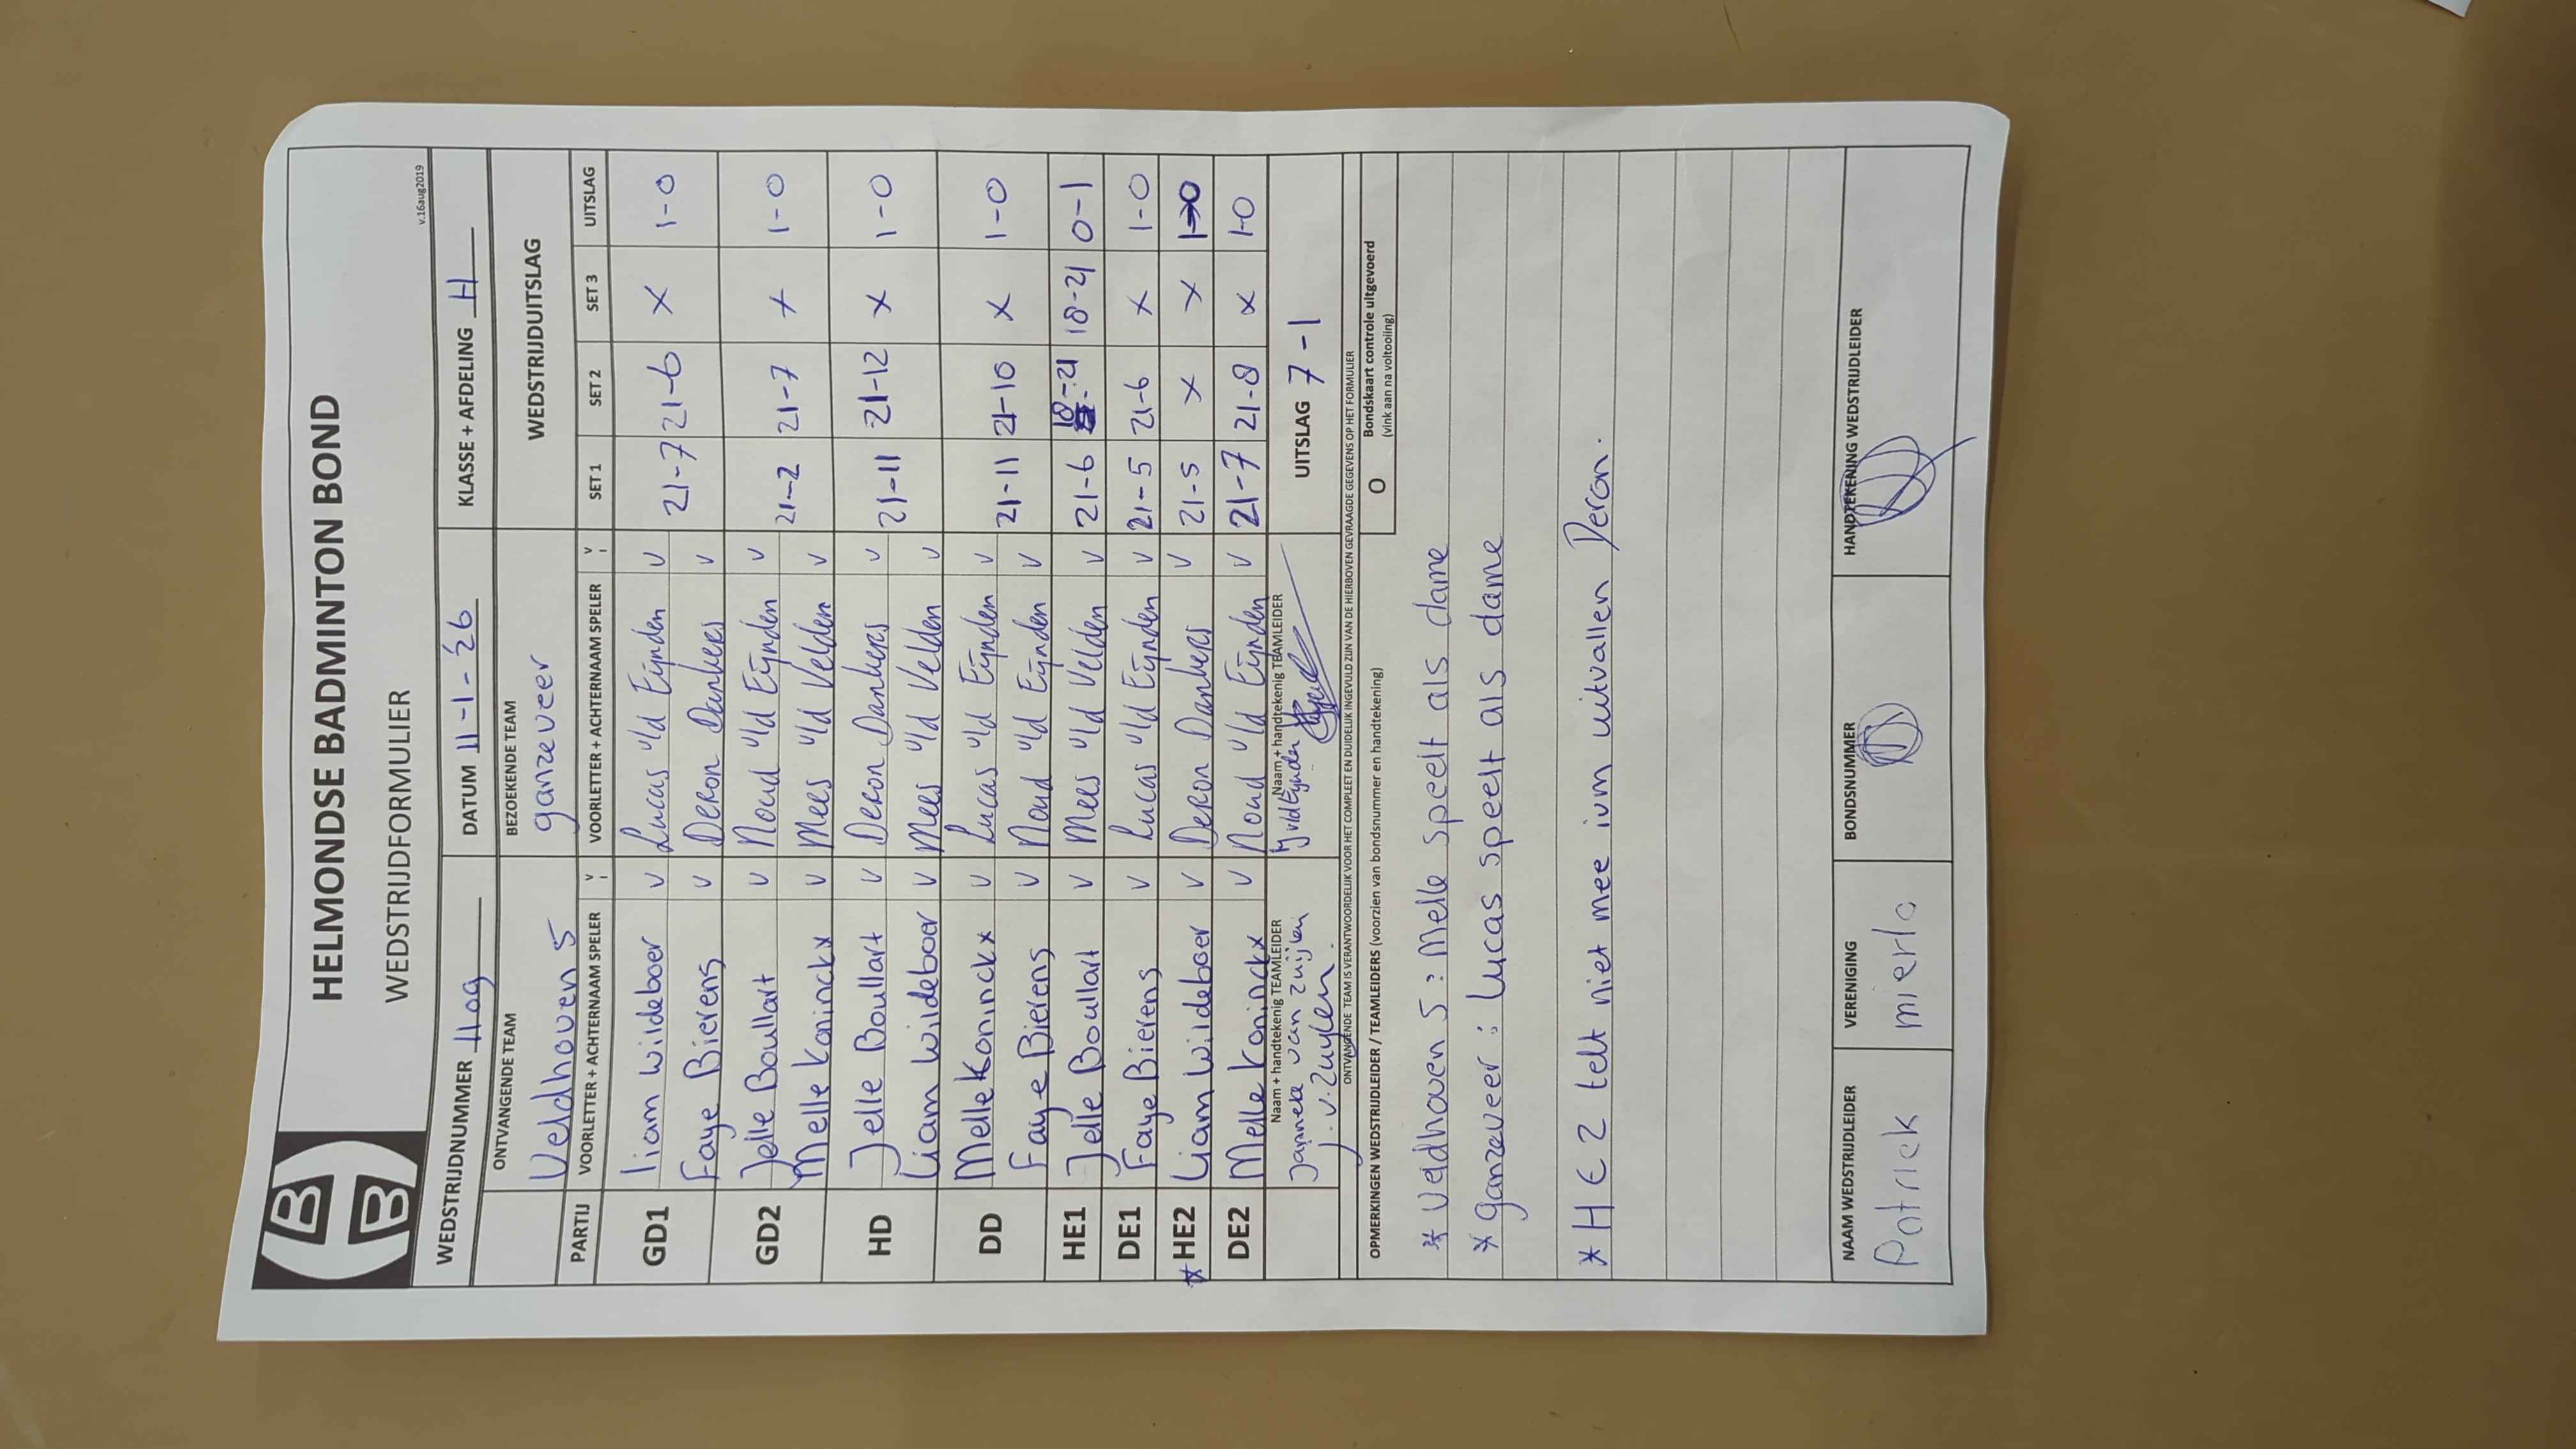 HELMONDSE BADMINTON BOND
WEDSTRIJDFORMULIER
v.16aug2019
WEDSTRIJDNUMMER Hog DATUM 11-1-26 KLASSE + AFDELING H
ONTVANGENDE TEAM BEZOEKENDE TEAM WEDSTRIJDUITSLAG
Veldhoven 5 ganzeveer
PARTIJ VOORLETTER + ACHTERNAAM SPELER V VOORLETTER + ACHTERNAAM SPELER V SET 1 SET 2 SET 3 UITSLAG
GD1 liam wildeboer v Lucas v/d Eijnden v 21-7 21-6 x 1-0
Faye Bierens v Deron Dankers v
GD2 Jelle Boullart v Noud v/d Eijnden v 21-2 21-7 x 1-0
Melle Koninckx v Mees v/d Velden v
HD Jelle Boullart v Deron Dankers v 21-11 21-12 x 1-0
Liam Wildeboer v Mees v/d Velden v
DD Melle Koninckx v Lucas v/d Eijnden v 21-11 21-10 x 1-0
Faye Bierens v Noud v/d Eijnden v
HE1 Jelle Boullart v Mees v/d Velden v 21-6 18-21 18-21 0-1
DE1 Faye Bierens v Lucas v/d Eijnden v 21-5 21-6 x 1-0
* HE2 Liam Wildeboer v Deron Dankers v 21-5 x x 1-0
DE2 Melle Koninckx v Noud v/d Eijnden v 21-7 21-8 x 1-0
Naam + handtekenig TEAMLEIDER Naam + handtekenig TEAMLEIDER UITSLAG 7-1
Janneke van Zuijlen
J. v. Zuylen.
ONTVANGENDE TEAM IS VERANTWOORDELIJK VOOR HET COMPLEET EN DUIDELIJK INGEVULD ZIJN VAN DE HIERBOVEN GEVRAAGDE GEGEVENS OP HET FORMULIER
OPMERKINGEN WEDSTRIJDLEIDER / TEAMLEIDERS (voorzien van bondsnummer en handtekening) O Bondskaart controle uitgevoerd
(vink aan na voltooiing)
* Veldhoven 5 : Melle speelt als dame
* ganzeveer : Lucas speelt als dame
* HE2 telt niet mee ivm uitvallen Deron.
NAAM WEDSTRIJDLEIDER VERENIGING BONDSNUMMER HANDTEKENING WEDSTRIJDLEIDER
Patrick mierlo